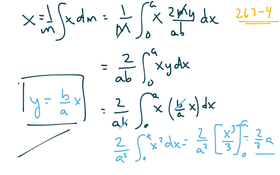 x = 1/m ∫ x dm = 1/M ∫₀ᵃ x 2My/ab dx
263-4
= 2/ab ∫₀ᵃ xy dx
y = b/a x
= 2/ab ∫₀ᵃ x (b/a x) dx
2/a² ∫₀ᵃ x² dx = 2/a² [x³/3]₀ᵃ = 2/3 a